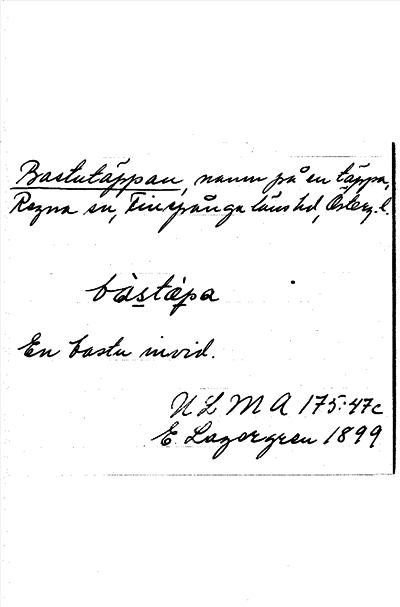 Bastutäppan, namn på en täppa,
Regna sn, Finspånga läns hd, Österg. l.
bàstæ̀pa
En bastu invid.
ULMA 175:47c
E. Lagergren 1899